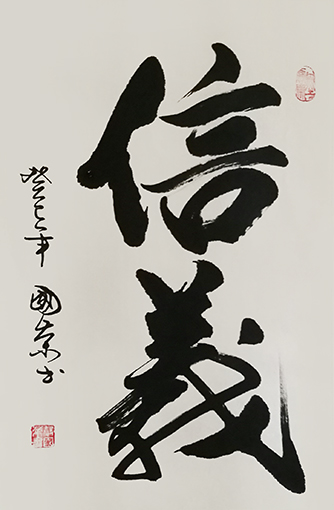 信義
癸巳年 國榮书